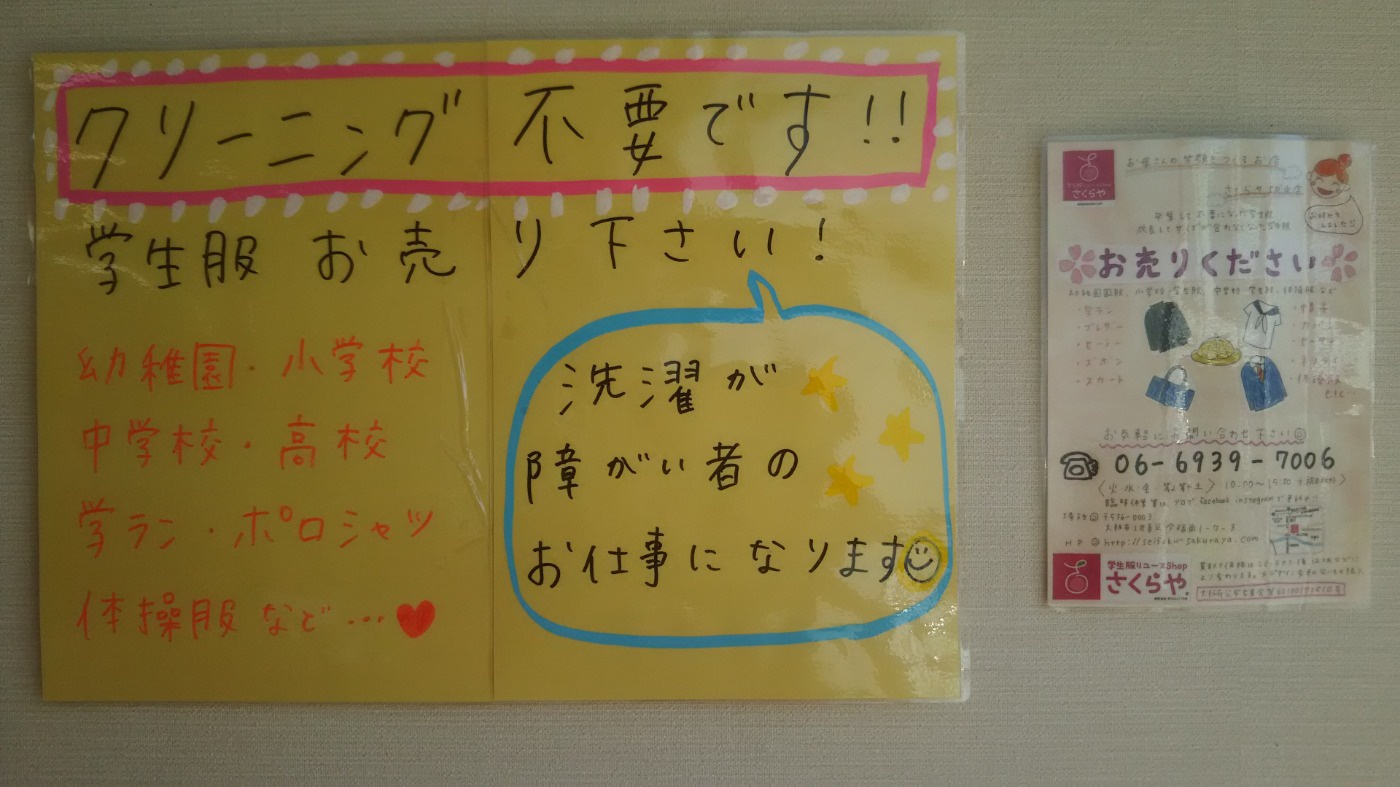 クリーニング 不要です!!
学生服 お売り下さい!
幼稚園・小学校
中学校・高校
学ラン・ポロシャツ
体操服 など…
洗濯が
障がい者の
お仕事になります
お母さんの笑顔をつくるお店
さくらや
お売りください
・学ラン
・ブレザー
・セーラー
・ズボン
・スカート
お気軽にお問い合わせ下さい
06-6939-7006
〈火・水・金・第2第4土〉
http://seifuku-sakuraya.com
学生服リユースShop
さくらや